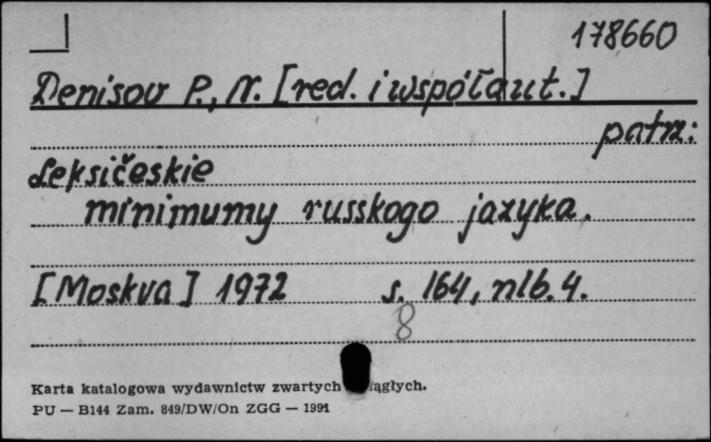 178660
Denisov P., N. [red. i współaut.]
patrz:
Leksičeskie
minimumy russkogo jazyka.
[Moskva] 1972 s. 164, nlb. 4.
8
Karta katalogowa wydawnictw zwartych ciągłych.
PU — B144 Zam. 849/DW/On ZGG — 1991